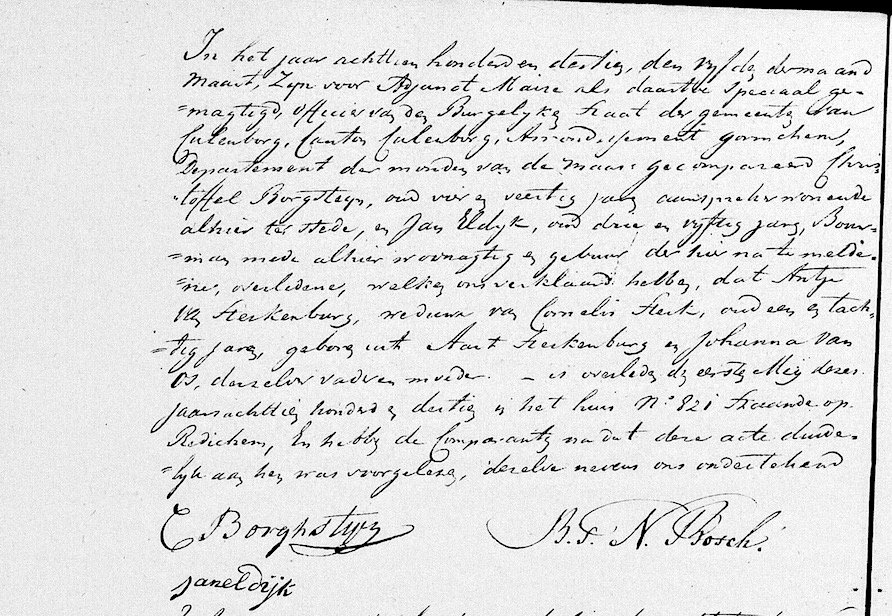 In het jaar achttien honderd en dertien, den vyfden der maand
Maart, Zyn voor Adjunct Maire als daartoe speciaal ge-
=magtigd, officier van den Burgelyken Staat der gemeente van
Culenborg, Canton Culenborg, Arrondissement Gorinchem,
Departement der monden van de Maas gecompareerd Chris-
=toffel Borgsteyn, oud vier en veertig jaren aanspreker wonende
alhier ter stede, en Jan Eldyk, oud drie en vyftig jaren, Bouw-
=man mede alhier woonagtig en gebuur der hier na te melde-
=ne, overledene, welke ons verklaard hebben, dat Antje
van Sterkenburg, weduwe van Cornelis Sterk, oud een en tach-
=tig jaren, geboren uit Aart Sterkenburg en Johanna van
Os, derzelver vader en moeder. – is overleden de eersten dezer
jaars achttien honderd en dertien in het huis No 821 staande op
Redichem, En hebben de Comparanten na dat deze acte duide-
=lyk aan hen was voorgelezen, dezelve nevens ons ondertekend
C Borghstyn B. F. N. Bosch.
Jan eldijk